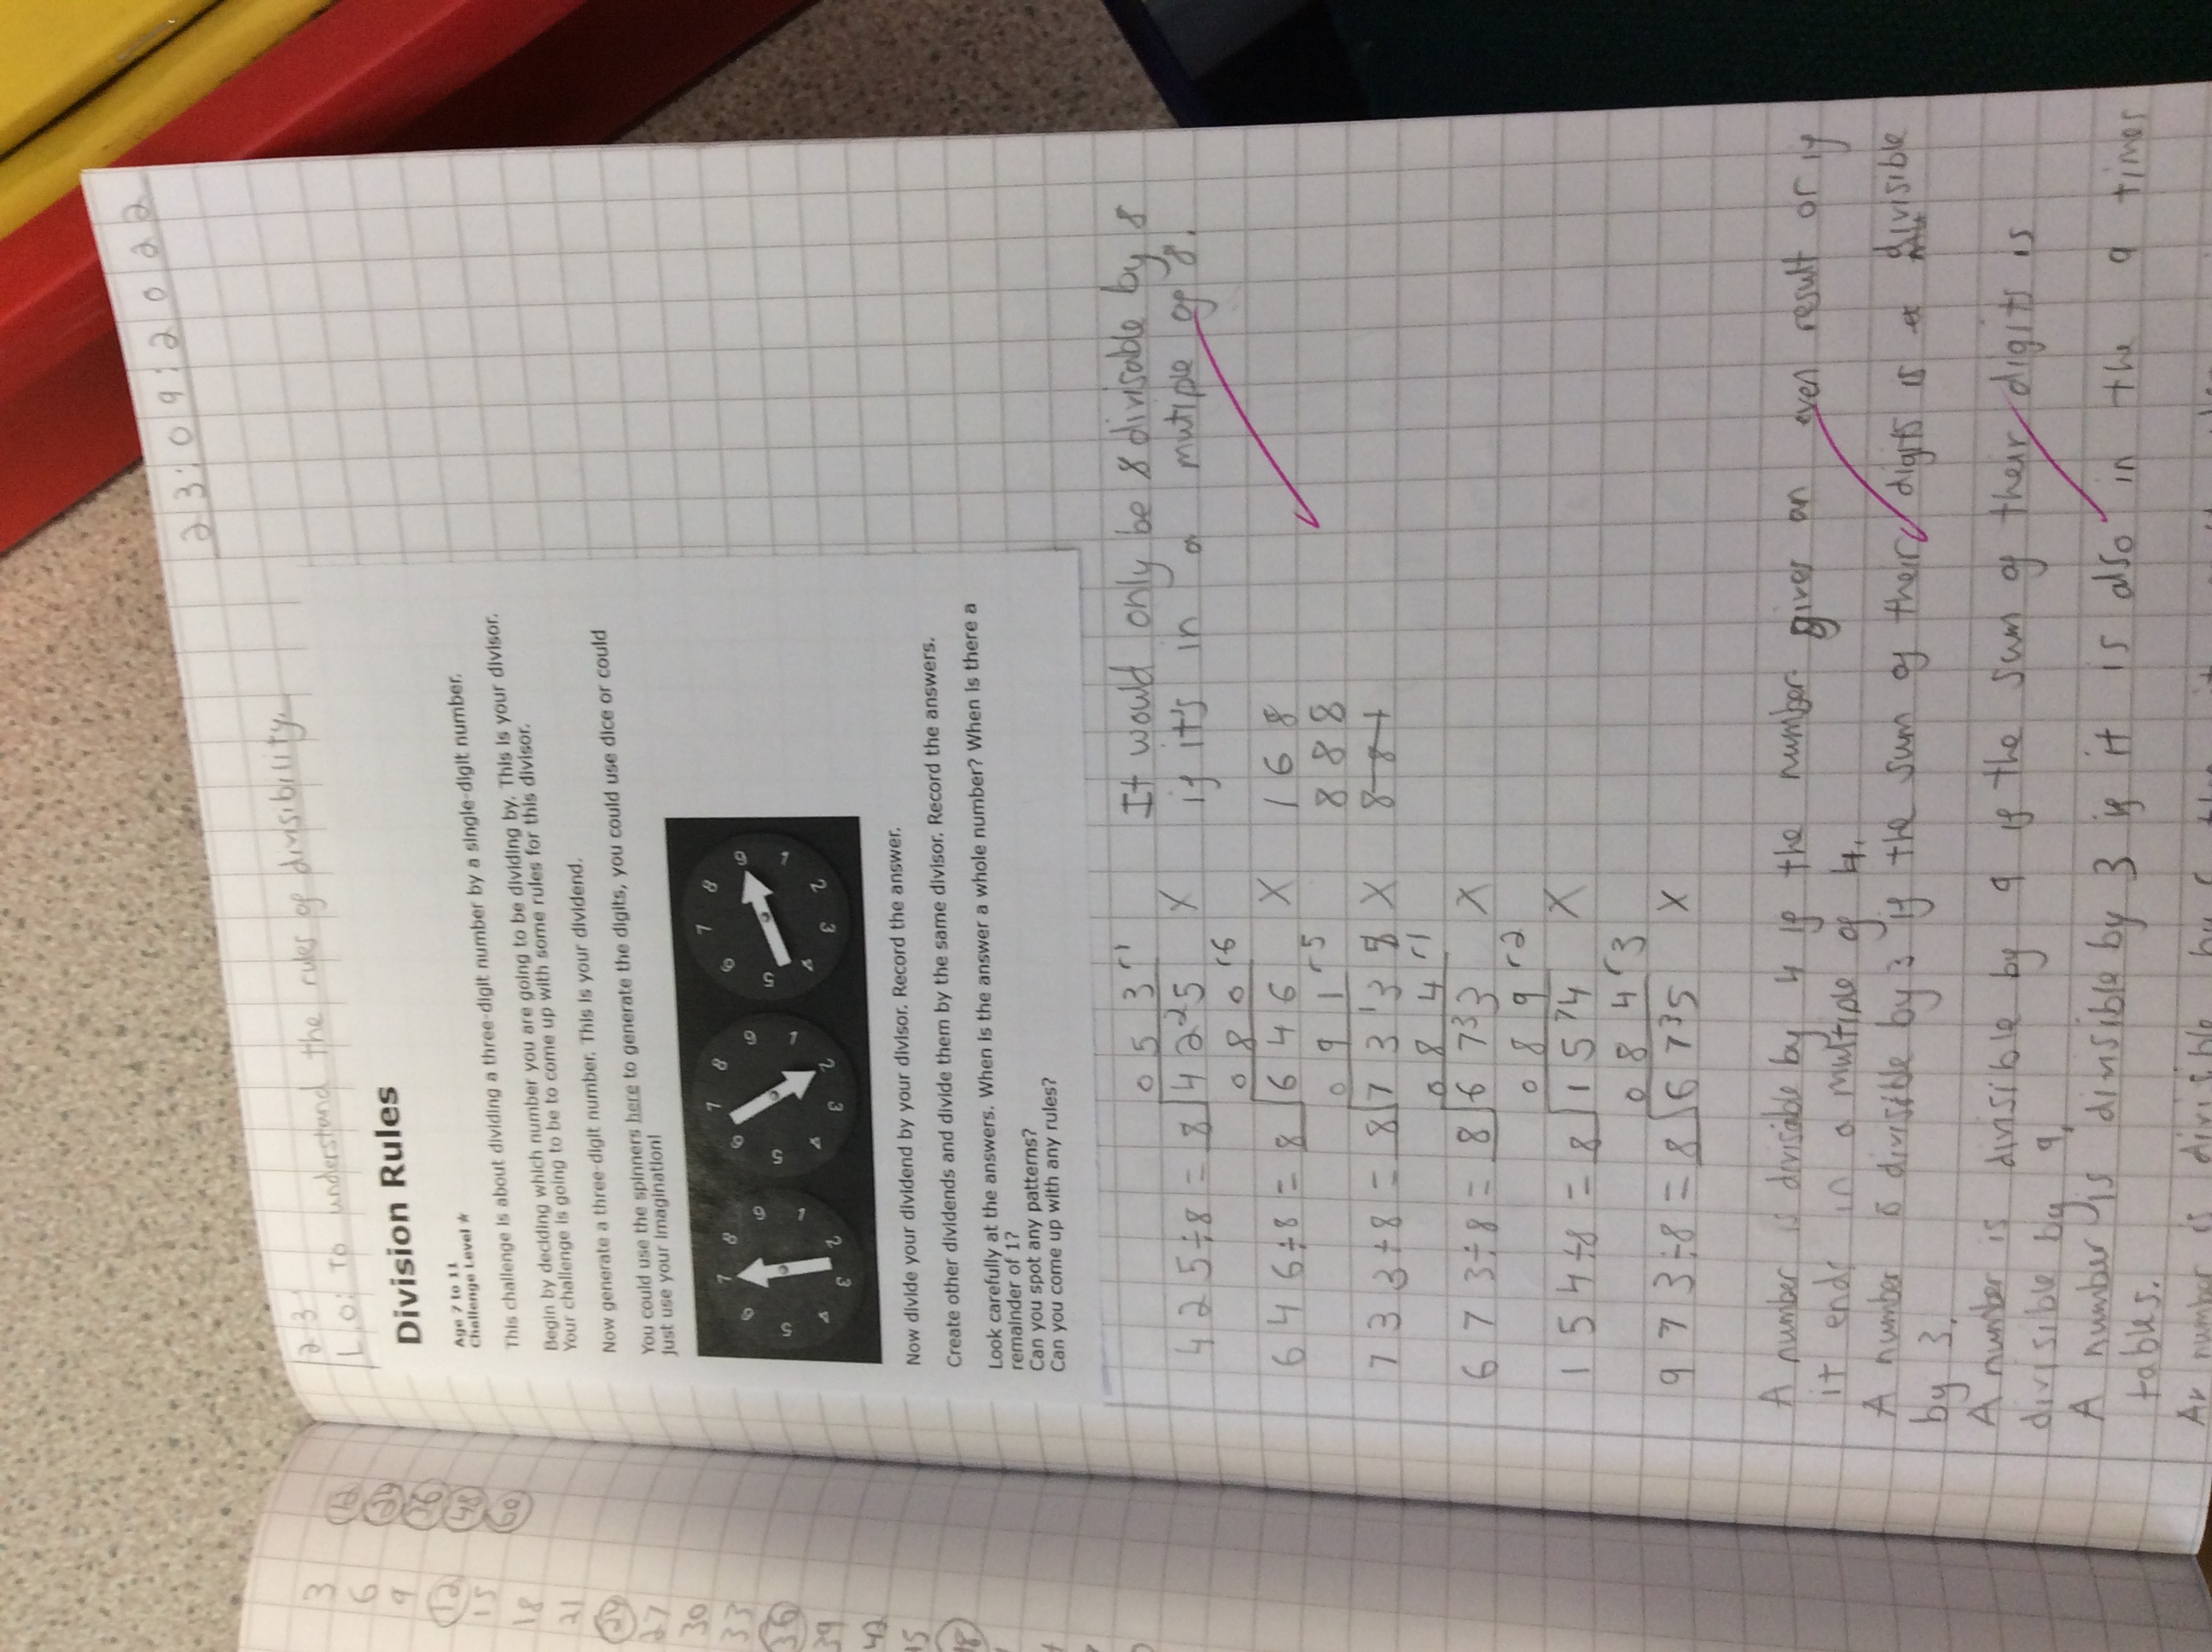 23:09:2022
23
L.O: To understand the rules of divisibility.
Division Rules
Age 7 to 11
Challenge Level ★
This challenge is about dividing a three-digit number by a single-digit number.
Begin by deciding which number you are going to be dividing by. This is your divisor.
Your challenge is going to be to come up with some rules for this divisor.
Now generate a three-digit number. This is your dividend.
You could use the spinners here to generate the digits, you could use dice or could
just use your imagination!
Now divide your dividend by your divisor. Record the answer.
Create other dividends and divide them by the same divisor. Record the answers.
Look carefully at the answers. When is the answer a whole number? When is there a
remainder of 1?
Can you spot any patterns?
Can you come up with any rules?
It would only be 8 divisable by 8
if it's in a mutiple of 8.
168
888
881
053 r1
425÷8= 8 4225 X
080 r6
646÷8= 8 646 X
091 r5
733÷8= 8 7313 8 X
084 r1
673÷8= 8 6733 X
089 r2
154÷8= 8 1574 X
084 r3
973÷8= 8 6735 X
A number is divisable by 4 if the number gives an even result or if
it ends in a multiple of 4.
A number is divisible by 3 if the sum of their digits is a divisible
by 3.
A number is divisible by 9 if the sum of their digits is
divisible by 9.
A number is divisible by 3 if it is also in the 9 times
tables.
number is divisible by
3
6
9
12
15
18
21
24
27
30
33
36
39
42
12
24
36
48
60